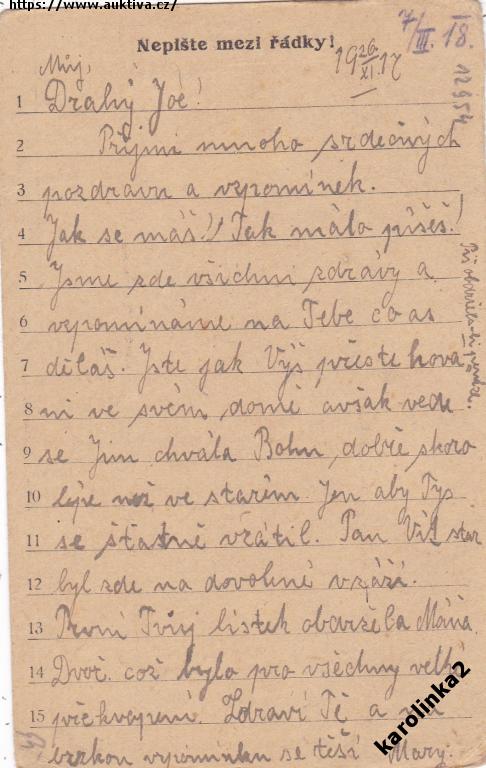 https://www.auktiva.cz/
Nepište mezi řádky!
7/III. 18.
19 26/XI 17
12954
Můj,
1 Drahý Joe!
2 Přijmi mnoho srdečných
3 pozdravu a vzpomínek.
4 Jak se máš!! Tak málo píšeš!
5 Jsme zde všichni zdrávy a
6 vzpomínáme na Tebe co as
7 děláš. Jste jak Víš přestěhova
8 ni ve svém domě avšak vede
9 se Jim chvála Bohu, dobře skoro
10 lépe než ve starém Jen aby Tys
11 se šťastně vrátil. Pan Vít star
12 byl zde na dovolené v září.
13 První Tvůj lístek obdržela Máňa
14 Dvoř. což bylo pro všechny velké
15 překvapení. Zdraví Tě a na
brzkou vzpomínku se těší Mary.
karolinka2